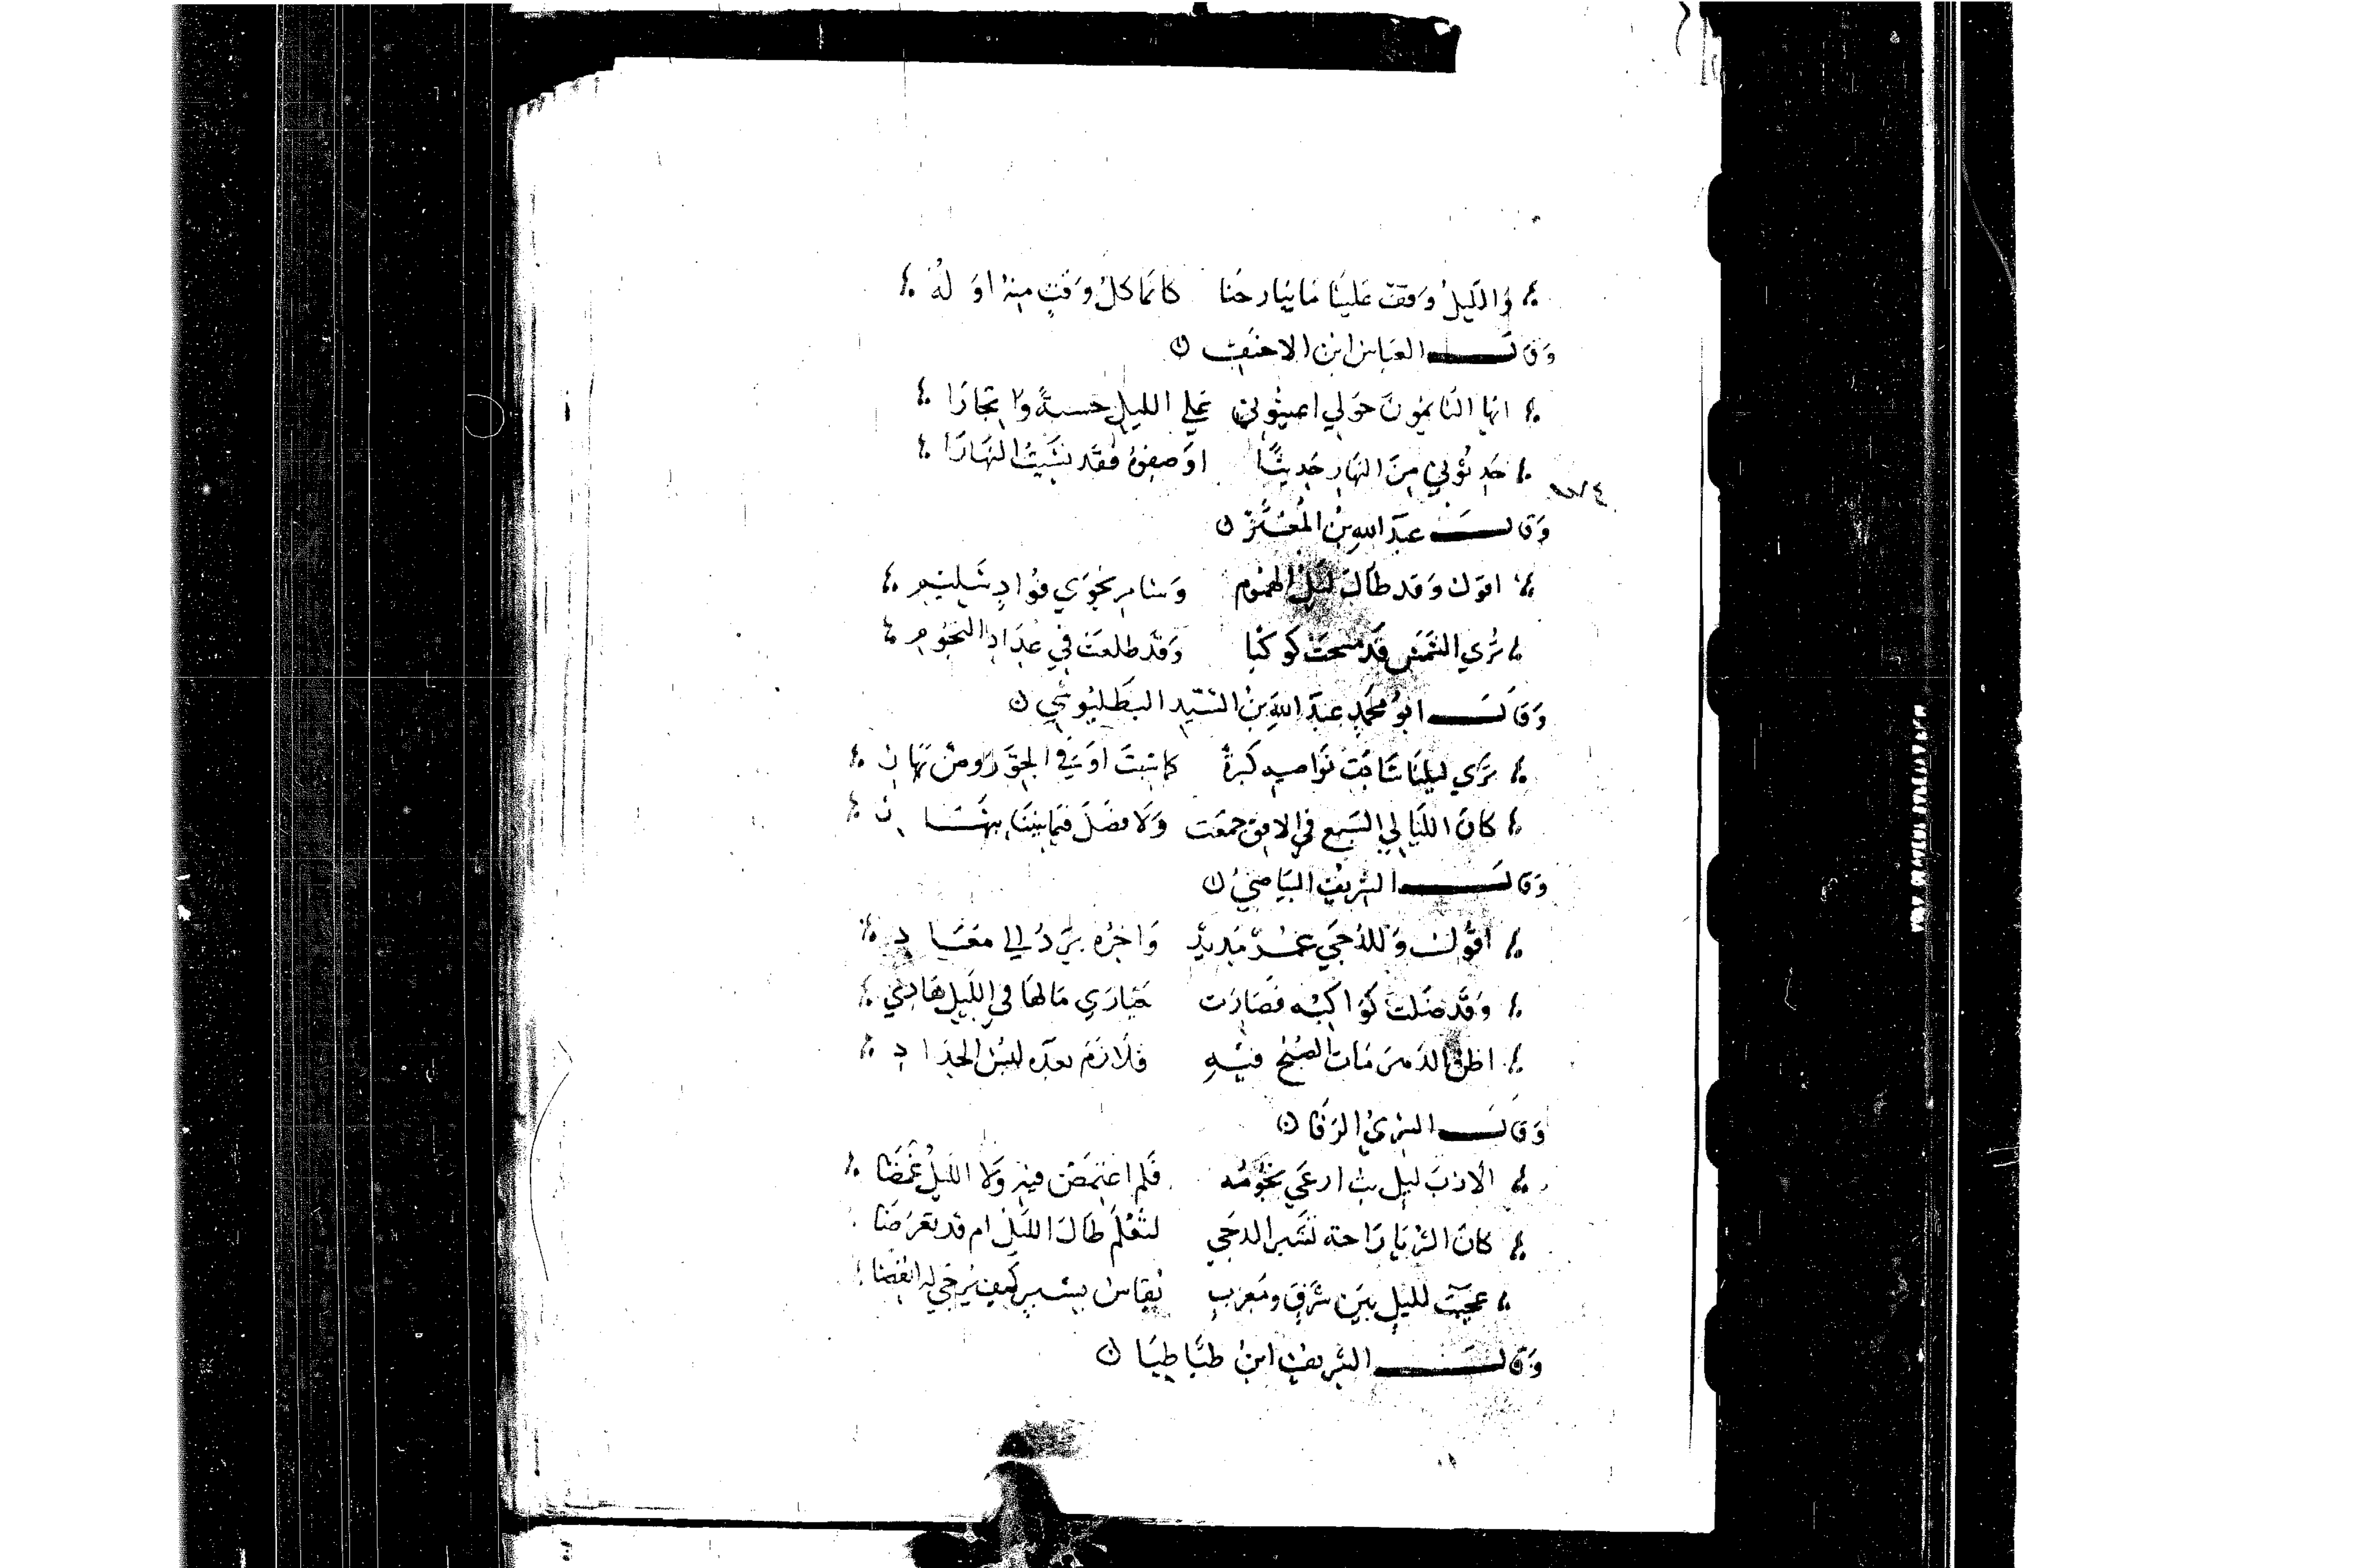 وَاللَّيلُ وَقفٌ عَلينَا مَا يُبَارحنَا كانما كلُ وَقتٍ مِنهُ اوَ لهُ
وَقَالَ العَبَاس ابن الاحنَفِ
ايها النَّايمُونَ حَولي اعينُوني عَلي الليلِ حسبةً وَاتجارَا
حَدِ ثوُني مِنَ النهَارِ حَدِيثًا اوَصِفوُهُ فَقَد نسَيتُ النهَارَا
٤
وَقالَ عبَد اللهِ بنُ المُعتَزّ
اقوَل وَقد طاَلَ لَيلُ الهمُوم وَسَامرِ نجوَي فؤُادٍ سَليِم
تُرَي الشمَس قَد مسحَت كوَ كبَا وَقَد طَلعَت في عِدَادِ النجوُمِ
وَقَالَ ابوُ محَمدٍ عَبدُ اللهِ بنُ السّيِد البَطَليُوسَيِ
تَرَي ليلنَا شَابَت نَوَاصيهِ كَبرةً كما شبتَ اوَ في الجوَّ رَوضُ نَهَارِ
كانَ اللّيَالِي السَبع في الافِق جمعَت وَلاَ فصَلَ فيمَا بينَنَا بِنهَارِ
وَقَالَ الشرِيفُ البَيَاضِيُ
اقُوُلُ وَللدُجَي عمُرٌ مَدِيدٌ وَاخِرُه يرَدُ الي مَعَادِ
وَقَد ضَلت كَوَاكبُه فَصَارَت حَيَارَي مَا لهَا في اللَيلِ هَادِي
اظن الدَهر مَات الصُبح فيهِ فلَازَمَ بعدَه لبُس الحدَادِ
وَقَالَ السَرِيُ الرَفَا
الا رُبَ ليلٍ بت ارعَي نجُومُه فَلم اغتمِض فيهِ وَلا اللَيلُ غَمَضَا
كانَ الثرَيَا رَاحة تَشبر الدجَي لتَعُلَم طَالَ اللَيلُ ام قَد تعَرَضَا
عجَبت لليلٍ بيَن شَرقٍ ومَغربٍ يُقاسُ بشِبرٍ كَيفَ يُرجَي لهَ انقضَا
وَقَالَ الشَرِيفُ ابنُ طبَاطبَا